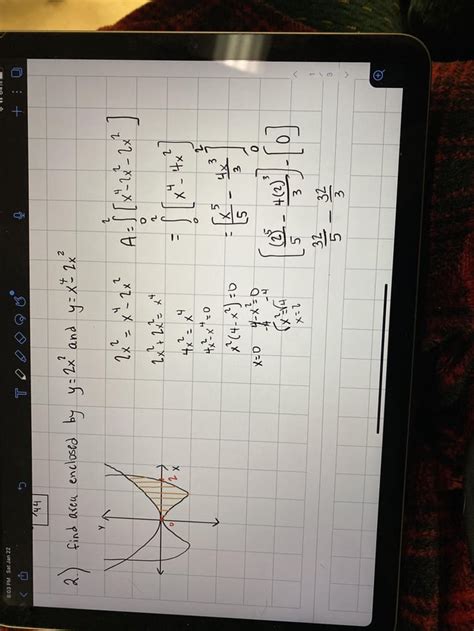 6:03 PM Sat Jan 22
1 / 3
144
2.) find area enclosed by y=2x² and y=x⁴-2x²
y
x
0
2
2x² = x⁴-2x²
2x²+2x²=x⁴
4x²=x⁴
4x²-x⁴=0
x²(4-x²)=0
x=0 4-x²=0
-4 -4
√x²=√4
x=2
A=∫₀²[x⁴-2x²-2x²]
=∫₀²[x⁴-4x²]
=[x⁵/5 - 4x³/3]₀²
[(2)⁵/5 - 4(2)³/3]-[0]
32/5 - 32/3